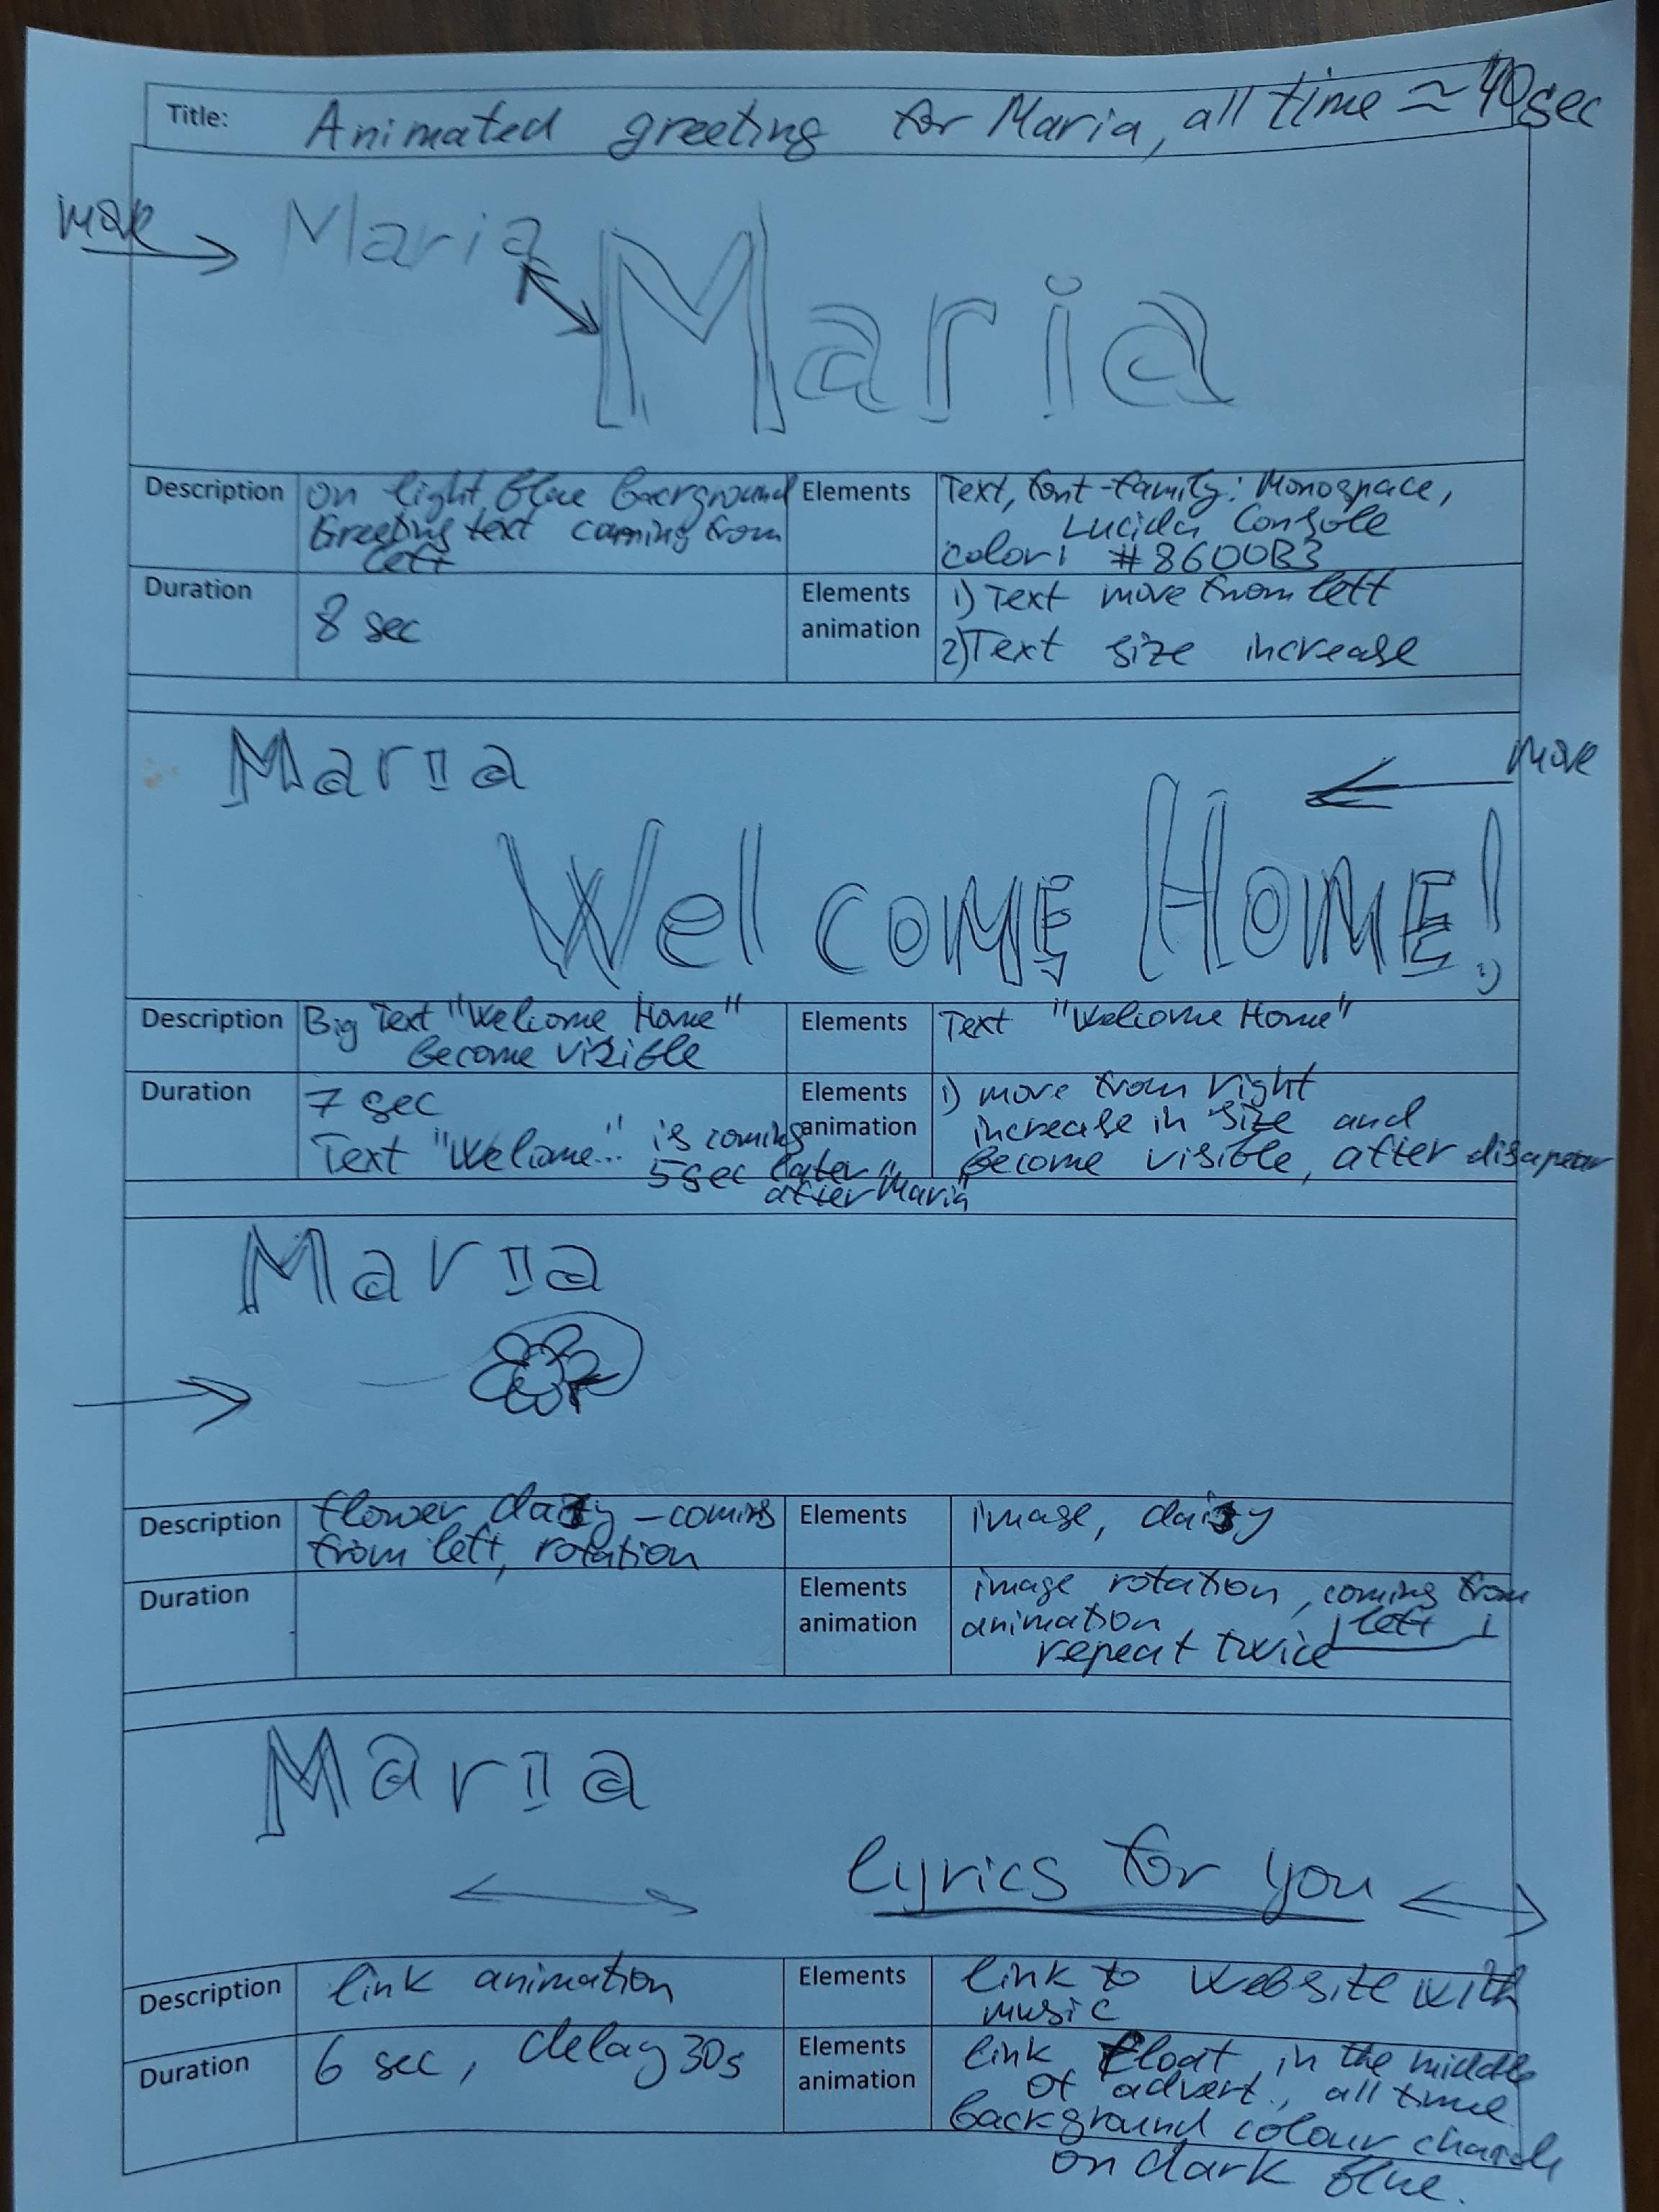 Title: Animated greeting for Maria, all time ≈ 40sec
move
Maria
Maria
Description
on light blue background
Greeting text coming from
left
Elements
Text, font-family: Monospace,
Lucida Console
color: #8600B3
Duration
8 sec
Elements
animation
1) Text move from left
2) Text size increase
Maria
move
Welcome Home!
Description
Big Text "Welcome Home"
become visible
Elements
Text "Welcome Home"
Duration
7 sec
Text "Welcome..." is coming
5sec later
after "Maria"
Elements
animation
1) move from right
increase in size and
become visible, after disapear
Maria
Description
flower daisy - coming
from left, rotation
Elements
image, daisy
Duration
Elements
animation
image rotation, coming from
left
animation
repeat twice
Maria
lyrics for you
Description
link animation
Elements
link to website with
music
Duration
6 sec, delay 30s
Elements
animation
link float in the middle
of advert., all time
background colour
on dark blue.